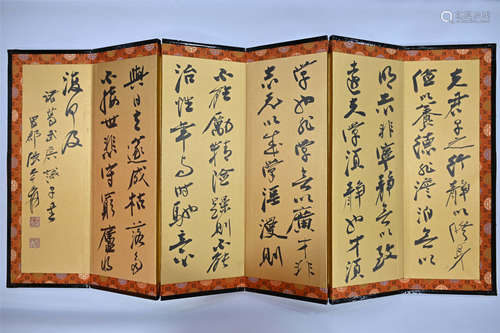 夫君子之行靜以修身
儉以養德非澹泊無以
明志非寧靜無以致
遠夫學須靜也才須
學也非學無以廣才非
志無以成學淫慢則
不能勵精險躁則不能
治性年與時馳意
與日去遂成枯落多
不接世悲守窮廬將
復何及
諸葛武侯誡子書
蜀郡張大千爰